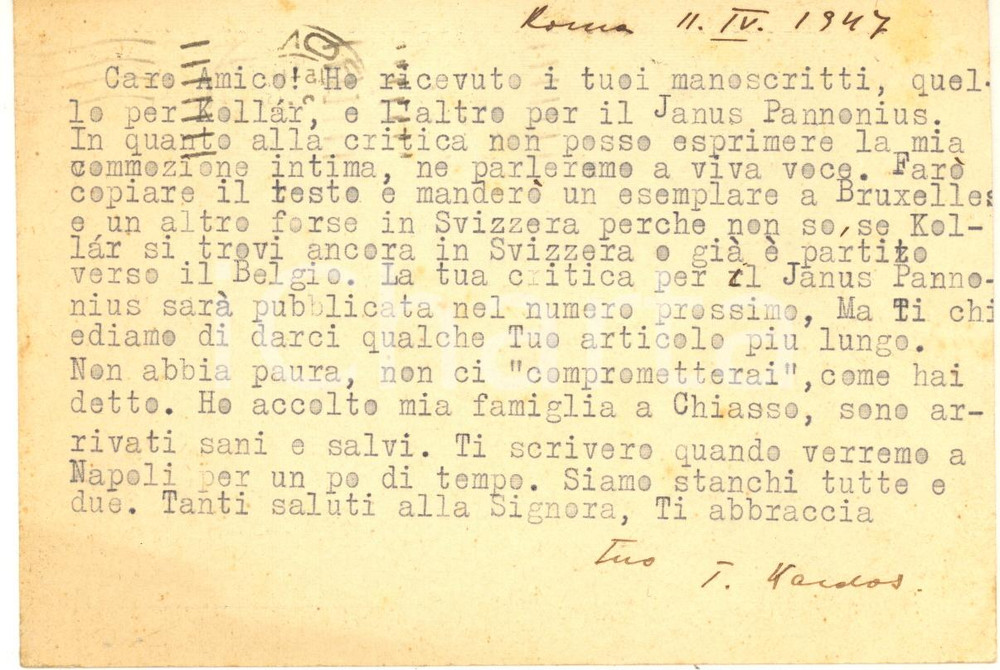 Roma 11. IV. 1947
Caro Amico! Ho ricevuto i tuoi manoscritti, quel-
lo per Kollár, e l'altro por il Janus Pannonius.
In quanto alla critica non posso esprimere la mia
commozione intima, ne parleremo a viva voce. Farò
copiare il testo e manderò un esemplare a Bruxelles
e un altro forse in Svizzera perche non so, se Kol-
lár si trovi ancora in Svizzera o già è partito
verso il Belgio. La tua critica per il Janus Panno-
nius sarà pubblicata nel numero prossimo, Ma Ti chi
ediamo di darci qualche Tuo articolo piu lungo.
Non abbia paura, non ci "comprometterai", come hai
detto. Ho accolto mia famiglia a Chiasso, sono ar-
rivati sani e salvi. Ti scrivero quando verremo a
Napoli per un po di tempo. Siamo stanchi tutte e
due. Tanti saluti alla Signora, Ti abbraccia
tuo T. Kardos.